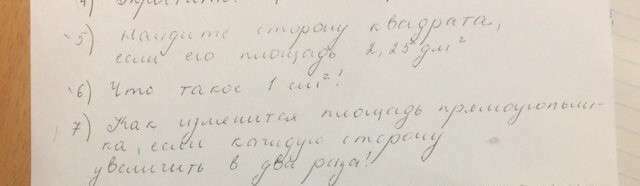 5) Найдите сторону квадрата,
если его площадь 2,25 дм²
6) Что такое 1 см²?
7) Как изменится площадь прямоугольни-
ка, если каждую сторону
увеличить в два раза?